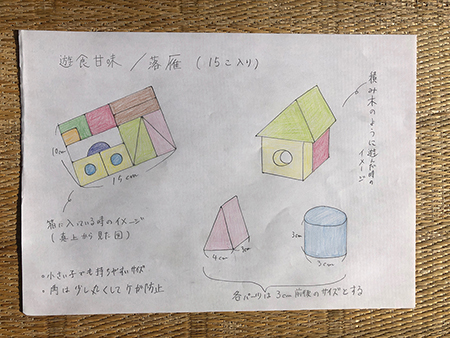 遊食甘味 / 落雁 (15こ入り)
積み木のように遊んだ時の
イメージ
10cm
15cm
箱に入っている時のイメージ
(真上から見た図)
4cm
3cm
3cm
3cm
・小さい子でも持ちやすいサイズ
・角は少し丸くしてケガ防止
各パーツは3cm前後のサイズとする